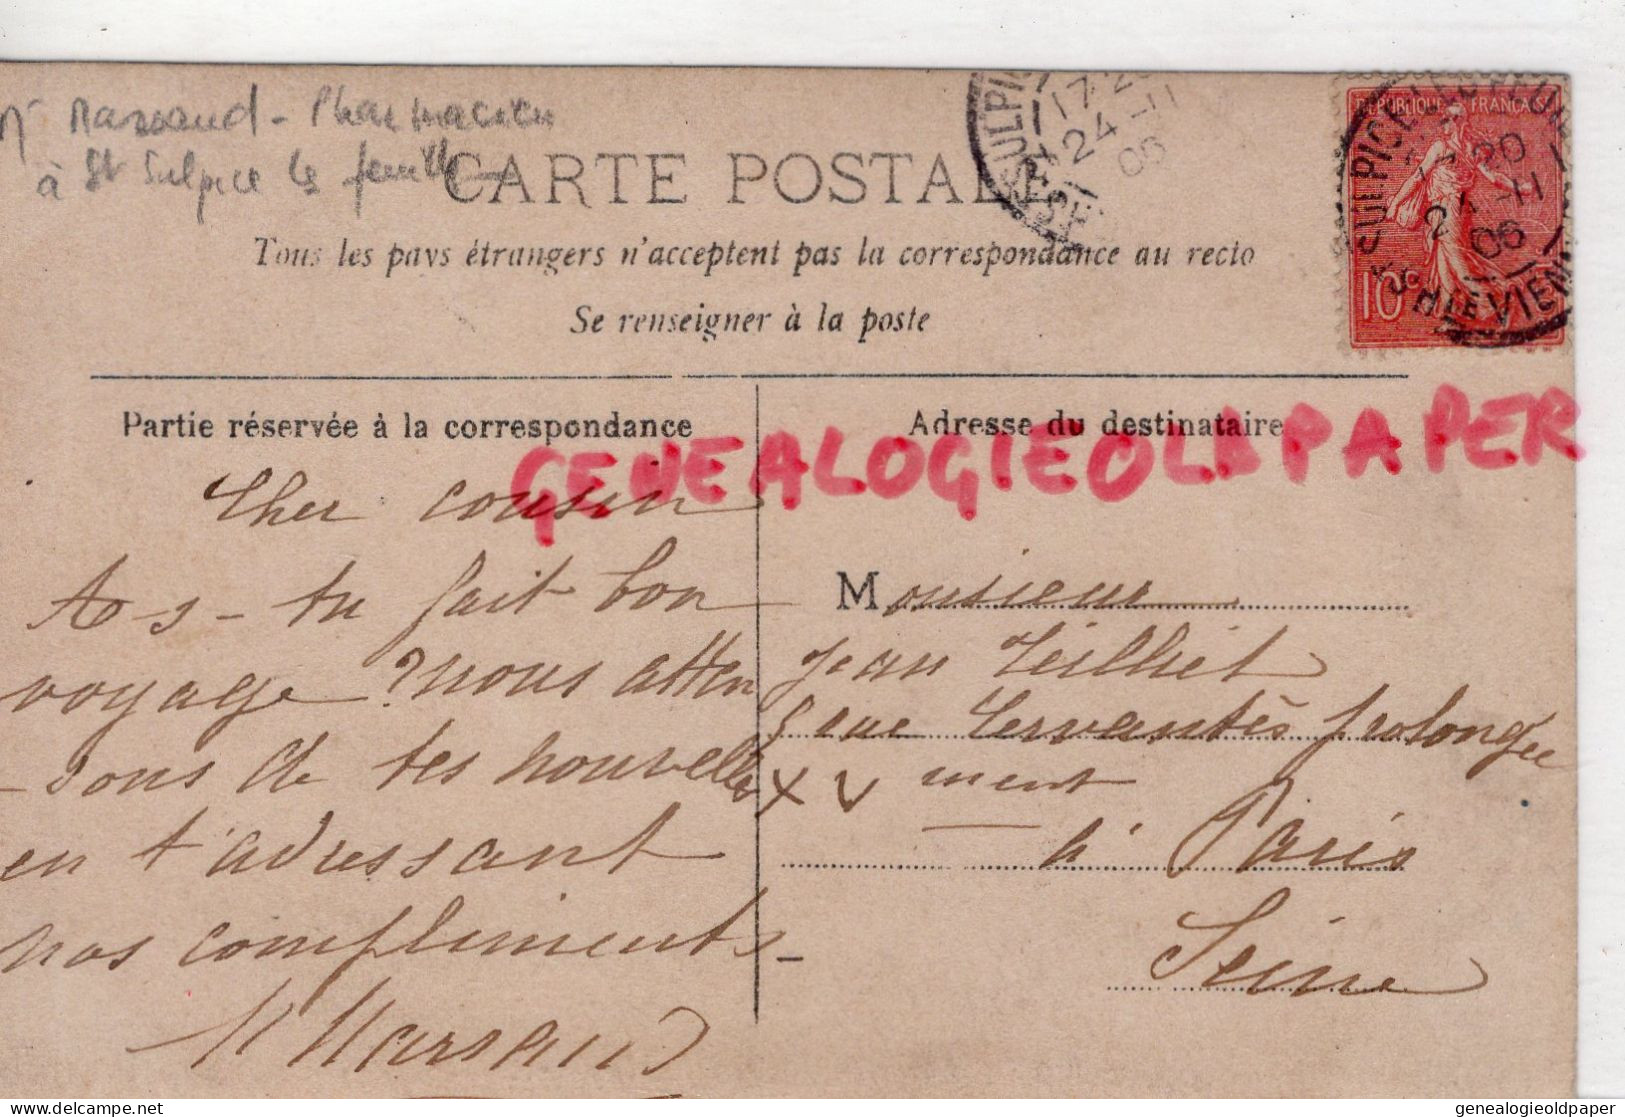 Mr Marsaud - Pharmacien
à St Sulpice les feuilles
CARTE POSTALE
Tous les pays étrangers n'acceptent pas la correspondance au recto
Se renseigner à la poste
RÉPUBLIQUE FRANÇAISE
10c
ST SULPICE LES FEUILLES
HTE VIENNE
24 -11
06
17 20
24 -11
06
Partie réservée à la correspondance
Adresse du destinataire
GENEALOGIEOLDPAPER
Cher cousin
As-tu fait bon
voyage? nous atten
-dons de tes nouvelles
en t'adressant
nos compliments-
Marsaud
Monsieur
Jean Teilliet
5 rue Cervantès prolongée
XV ment
à Paris
Seine
genealogieoldpaper